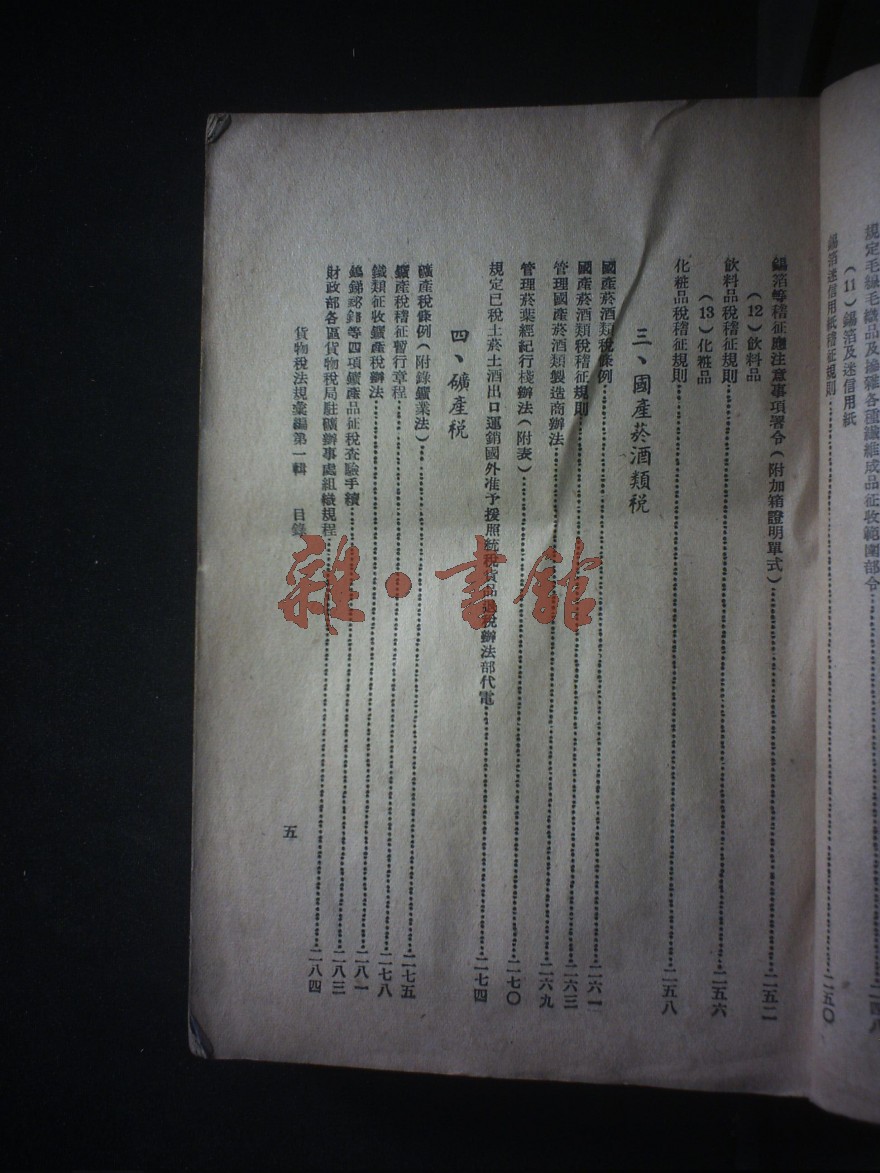 規定毛線毛織品及摻雜各種纖維成品征收範圍部令……二四八
(11)錫箔及迷信用紙
錫箔迷信用紙稽征規則……二五〇
錫箔等稽征應注意事項署令(附加箱證明單式)……二五二
(12)飲料品
飲料品稅稽征規則……二五六
(13)化粧品
化粧品稅稽征規則……二五八
三、國產菸酒類稅
國產菸酒類稅條例……二六一
國產菸酒類稅稽征規則……二六三
管理國產菸酒類製造商辦法……二六九
管理菸葉經紀行棧辦法(附表)……二七〇
規定已稅土菸土酒出口運銷國外准予援照統稅貨品退稅辦法部代電……二七四
四、礦產稅
礦產稅條例(附錄鑛業法)……二七五
鑛產稅稽征暫行章程……二七八
鐵類征收鑛產稅辦法……二八一
鎢銻錫等四項鑛產品征稅查驗手續……二八三
財政部各區貨物稅局駐礦辦事處組織規程……二八四
貨物稅法規彙編第一輯 目錄
五
雜·書館